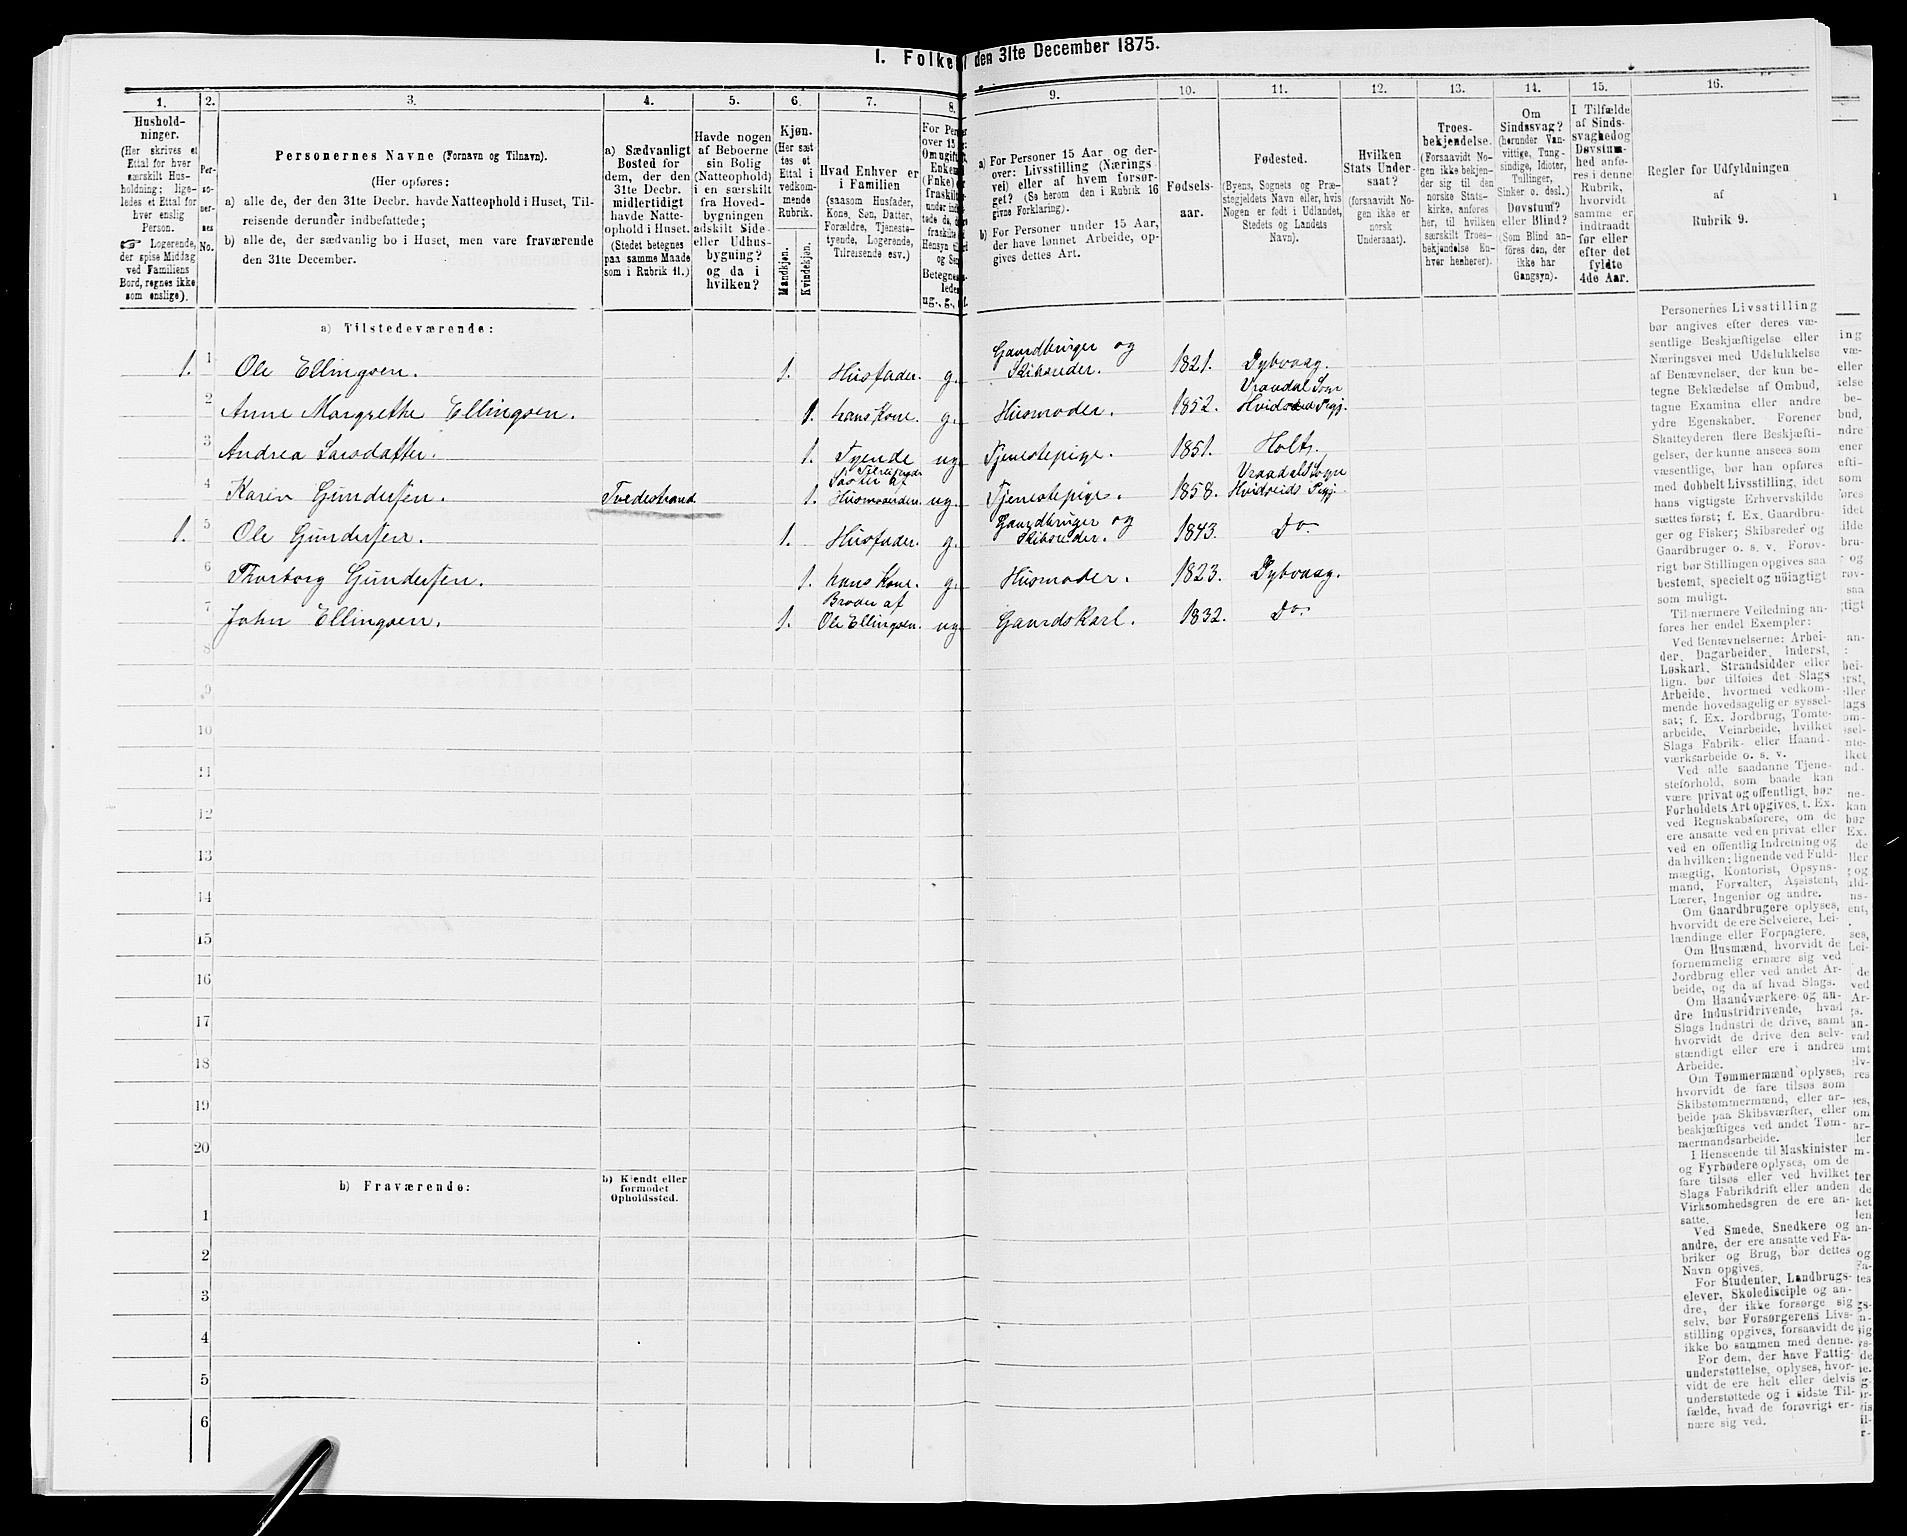 I. Folket
den 31te December 1875.
1.
Hushold-
ninger.
(Her skrives et
Ettal for hver
særskilt Hus-
holdning; lige-
ledes et Ettal for
hver enslig
Person.
☞ Logerende,
der spise Middag
ved Familiens
Bord, regnes ikke
som enslige).
2.
Per-
so-
ner-
nes
No.
3.
Personernes Navne (Fornavn og Tilnavn).
(Her opføres:
a) alle de, der den 31te Decbr. havde Natteophold i Huset, Til-
reisende derunder indbefattede;
b) alle de, der sædvanlig bo i Huset, men vare fraværende
den 31te December.
4.
a) Sædvanligt
Bosted for
dem, der den
31te Decbr.
midlertidigt
havde Natte-
ophold i Huset.
(Stedet betegnes
paa samme Maade
som i Rubrik 11.)
5.
Havde nogen
af Beboerne
sin Bolig
(Natteophold)
i en særskilt
fra Hoved-
bygningen
adskilt Side-
eller Udhus-
bygning?
og da i
hvilken?
6.
Kjøn.
(Her sæt-
tes et
Ettal i
vedkom-
mende
Rubrik.
Mandkjøn.
Kvindekjøn.
7.
Hvad Enhver er
i Familien
(saasom Husfader,
Kone, Søn, Datter,
Forældre, Tjeneste-
tyende, Logerende,
Tilreisende osv.)
8.
For Per
over 15
Om ugift
Enken
(Enke)
fraskilt
9.
a) For Personer 15 Aar og der-
over: Livsstilling (Nærings-
vei) eller af hvem forsør-
get? (Se herom den i Rubrik 16
givne Forklaring).
b) For Personer under 15 Aar,
der have lønnet Arbeide, op-
gives dettes Art.
10.
Fødsels-
aar.
11.
Fødested.
(Byens, Sognets og Præ-
stegjeldets Navn eller, hvis
Nogen er født i Udlandet,
Stedets og Landets
Navn).
12.
Hvilken
Stats Under-
saat?
(forsaavidt No-
gen ikke er
norsk
Undersaat).
13.
Troes-
bekjendelse.
(Forsaavidt No-
gen ikke bekjen-
der sig til den
norske Stats-
kirke, anføres
her, til hvilken
særskilt Troes-
bekjendelse En-
hver henhører).
14.
Om
Sindssvag?
(herunder Van-
vittige, Tung-
sindige, Idioter,
Tullinger,
Sinker o. desl.)
Døvstum?
eller Blind?
(Som Blind an-
føres den, der
ikke har
Gangsyn).
15.
I Tilfælde
af Sinds-
svaghed og
Døvstum-
hed anfø-
res i denne
Rubrik,
hvorvidt
samme er
indtraadt
før eller
efter det
fyldte
4de Aar.
16.
Regler for Udfyldningen
af
Rubrik 9.
a) Tilstedeværende:
1. 1 Ole Ellingsen. 1. Husfader. g. Gaardbruger og Skibsreder. 1821. Dybvaag.
2 Anne Margrethe Ellingsen. 1. hans Kone. g. Husmoder. 1852. Vraadal Sogn Hvidsed Pregj.
3 Andrea Larsdatter. 1. Tyende ug. Tjenestepige. 1851. Holt.
4 Karen Gundersen. Tvedestrand 1. Tilreisende Søster af Husmoderen. ug. Tjenestepige. 1858. Vraadals Sogn Hvideseids Pregj.
1. 5 Ole Gundersen. 1. Husfader. g. Gaardbruger og Skibsreder. 1843. Do
6 Thorborg Gundersen. 1. hans Kone. g. Husmoder. 1823. Dybvaag.
7 John Ellingsen. 1. Broder af Ole Ellingsen. ug. Gaardskarl. 1832. Do
8
9
10
11
12
13
14
15
16
17
18
19
20
b) Fraværende:
b) Kjendt eller
formodet
Opholdssted.
1
2
3
4
5
6
Personernes Livsstilling
bør angives efter deres væ-
sentlige Beskjæftigelse eller
Næringsvei med Udelukkelse
af Benævnelser, der kun be-
tegne Beklædelse af Ombud,
tagne Examina eller andre
ydre Egenskaber. Forener
Skatteyderen flere Beskjæfti-
gelser, der kunne ansees som
væsentlige, bør han opføres
med dobbelt Livsstilling, idet
hans vigtigste Erhvervskilde
sættes først; f. Ex. Gaardbru-
ger og Fisker; Skibsreder og
Gaardbruger o. s. v. Forøv-
rigt bør Stillingen opgives saa
bestemt, specielt og nøiagtigt
som muligt.
Til nærmere Veiledning an-
føres her endel Exempler:
Ved Benævnelserne: Arbei-
der, Dagarbeider, Inderst,
Løskarl, Strandsidder eller
lign. bør tilføies det Slags
Arbeide, hvormed vedkom-
mende hovedsagelig er syssel-
sat; f. Ex. Jordbrug, Tomte-
arbeide, Veiarbeide, hvilket
Slags Fabrik- eller Haand-
værksarbeide o. s. v.
Ved alle saadanne Tjene-
steforhold, som baade kan
være privat og offentligt, bør
Forholdets Art opgives, t. Ex.
ved Regnskabsførere, om de
ere ansatte ved en privat eller
ved en offentlig Indretning og
da hvilken; lignende ved Fuld-
mægtig, Kontorist, Opsyns-
mand, Forvalter, Assistent,
Lærer, Ingeniør og andre.
Om Gaardbrugere oplyses,
hvorvidt de ere Selveiere, Lei-
lændinge eller Forpagtere.
Om Husmænd, hvorvidt de
fornemmelig ernære sig ved
Jordbrug eller ved andet Ar-
beide, og da af hvad Slags.
Om Haandværkere og an-
dre Industridrivende, hvad
Slags Industri de drive, samt
hvorvidt de drive den selv-
stændigt eller ere i andres
Arbeide.
Om Tømmermænd oplyses,
hvorvidt de fare tilsøs som
Skibstømmermænd, eller ar-
beide paa Skibsværfter, eller
beskjæftiges ved andet Tøm-
mermandsarbeide.
I Henseende til Maskinister
og Fyrbødere oplyses, om de
fare tilsøs eller ved hvilket
Slags Fabrikdrift eller anden
Virksomhedsgren de ere an-
satte.
Ved Smede, Snedkere og
andre, der ere ansatte ved Fa-
briker og Brug, bør dettes
Navn opgives.
For Studenter, Landbrugs-
elever, Skoledisciple og an-
dre, der ikke forsørge sig
selv, bør Forsørgerens Livs-
stilling opgives, forsaavidt de
ikke bo sammen med denne.
For dem, der have Fattig-
understøttelse, oplyses, hvor-
vidt de ere helt eller delvis
understøttede og i sidste Til-
fælde, hvad de forøvrigt er-
nære sig ved.